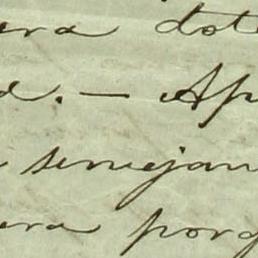 era dot
d. — Ap
semejan
era porq